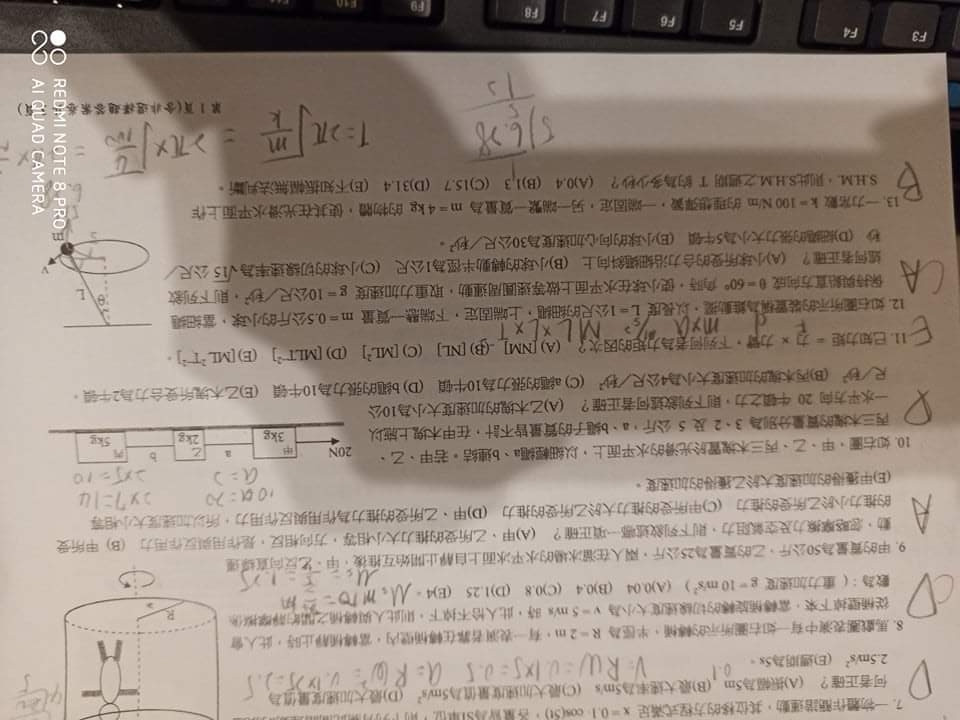 7. 一物體作簡諧運動，其位移的方程式滿足 x＝0.1 cos(5t)，各量皆為SI單位，
何者正確？ (A)振幅為5m (B)最大速率為5m/s (C)最大加速度量值為5m/s² (D)最大加速度量值為
2.5m/s² (E)週期為5s。
8. 馬戲團表演中有一如右圖所示的轉桶，半徑為 R＝2 m，有一表演者靠在轉桶壁內，當轉桶靜止時，此人會
從桶壁掉下來，當轉桶旋轉的切線速度大小為 v＝5 m/s 時，此人恰不掉下，則此人與轉桶之間的靜摩擦係
數為：( 重力加速度 g＝10 m/s² ) (A)0.04 (B)0.4 (C)0.8 (D)1.25 (E)4。
9. 甲的質量為50公斤，乙的質量為25公斤，兩人在溜冰場的水平冰面上自靜止開始互推後，甲、乙反向直線運
動，忽略摩擦力及空氣阻力，則下列敘述哪一項正確？ (A)甲、乙所受的推力大小相等，方向相反，是作用與反作用力 (B) 甲所受
的推力小於乙所受的推力 (C)甲所受的推力大於乙所受的推力 (D)甲、乙所受的推力為作用與反作用力，所以加速度大小相等
(E)甲獲得的加速度大於乙獲得的加速度。
10. 如右圖，甲、乙、丙三木塊置於光滑的水平面上，以細輕繩a、b連結。若甲、乙、
丙三木塊的質量分別為 3、2 及 5 公斤，a、b繩子的質量皆不計，在甲木塊上施以
一水平方向 20 牛頓之力，則下列敘述何者正確？ (A)乙木塊的加速度大小為10公
尺／秒² (B)丙木塊的加速度大小為4公尺／秒² (C) a繩的張力為10牛頓 (D) b繩的張力為10牛頓 (E)乙木塊所受合力為2牛頓。
20N
甲
3kg
a
乙
2kg
b
丙
5kg
11. 已知力矩 ＝ 力 × 力臂，下列何者為力矩的因次？ (A) [NM] (B) [NL] (C) [ML²] (D) [MLT⁻²] (E) [ML²T⁻²]。
12. 如右圖所示的裝置稱為錐動擺，以長度 L＝1公尺的細繩，上端固定，下端懸一質量 m＝0.5公斤的小球，當細繩
保持與鉛直方向成 θ＝60° 角時，使小球在水平面上做等速圓周運動，取重力加速度 g＝10公尺／秒²，則下列敘
述何者正確？ (A)小球所受的合力沿細繩斜向上 (B)小球的轉動半徑為1公尺 (C)小球的切線速率為√15 公尺／
秒 (D)細繩的張力大小為5牛頓 (E)小球的向心加速度為30公尺／秒²。
13. 一力常數 k＝100 N/m 的理想彈簧，一端固定，另一端繫一質量為 m＝4 kg 的物體，使其在光滑水平面上作
S.H.M.，則此S.H.M.之週期 T 約為多少秒？ (A)0.4 (B)1.3 (C)15.7 (D)31.4 (E)不知振幅無法判斷。
T=2π√m/k
第 1 頁
R
θ
L
m
v
REDMI NOTE 8 PRO
AI QUAD CAMERA
F3
F4
F5
F6
F7
F8
F9
F10